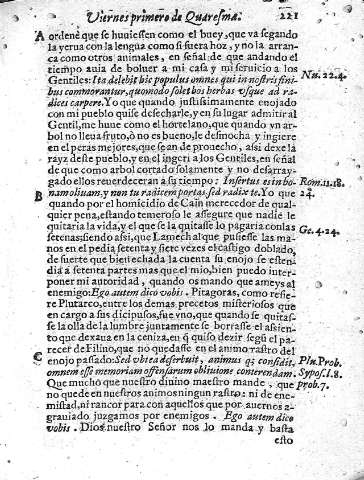 Viernes primero de Quaresma. 221
A ordenè que se huuiessen como el buey, que va segando
la yerua con la lengua como si fuera hoz, y no la arran-
ca como otros animales, en señal de que andando el
tiempo auia de boluer a mi casa y mi seruicio a los
Gentiles: Ita delebit hic populus omnes qui in nostris fini- Nu. 22.4.
bus commorantur, quomodo solet bos herbas vsque ad ra-
dices carpere. Yo que quando justissimamente enojado
con mi pueblo quise desecharle, y en su lugar admitir al
Gentil, me huue como el hortelano, que quando vn ar-
bol no lleua fruto, ò no es bueno, le desmocha y ingiere
en el peras mejores, que sean de prouecho, assi dexe la
rayz deste pueblo, y en el ingeri a los Gentiles, en señal
de que como arbol cortado solamente y no desarray-
gado ellos reuerdeceran a su tiempo: Insertus es in bo- Rom. 11.18.
B nam oliuam, y non tu radicem portas, sed radix te. Yo que 24.
quando por el homicidio de Cain merecedor de qual-
quier pena, estando temeroso le assegure que nadie le
quitaria la vida, y el que se la quitasse lo pagaria con las
setenas; siendo assi, que Lamech al que pusiesse las ma- Ge. 4.24.
nos en el pedia setenta y siete vezes el castigo doblado,
de suerte que bien echada la cuenta su enojo se esten-
dia a setenta partes mas que el mio, bien puedo inter-
poner mi autoridad, quando os mando que ameys al
enemigo: Ego autem dico vobis. Pitagoras, como refie-
re Plutarco, entre los demas precetos misteriosos que
en cargo a sus dicipulos, fue vno, que quando se quitas-
se la olla de la lumbre juntamente se borrasse el assien-
to que dexaua en la ceniza, en q̃ quiso dezir segũ el pa-
recer de Filino, que no quedasse en el animo rastro del
C enojo passado: Sed vbi ea deferbuit, animus q; considit, Plu. Prob.
omnem esse memoriam offensarum obliuione conterendam. Sypos. l. 8.
Que mucho que nuestro diuino maestro mande, que prob. 7.
no quede en nuestros animos ningun rastro: ni de ene-
mistad, ni rancor para con aquellos que por auernos a-
grauiado juzgamos por enemigos. Ego autem dico
vobis. Dios nuestro Señor nos lo manda y basta
esto